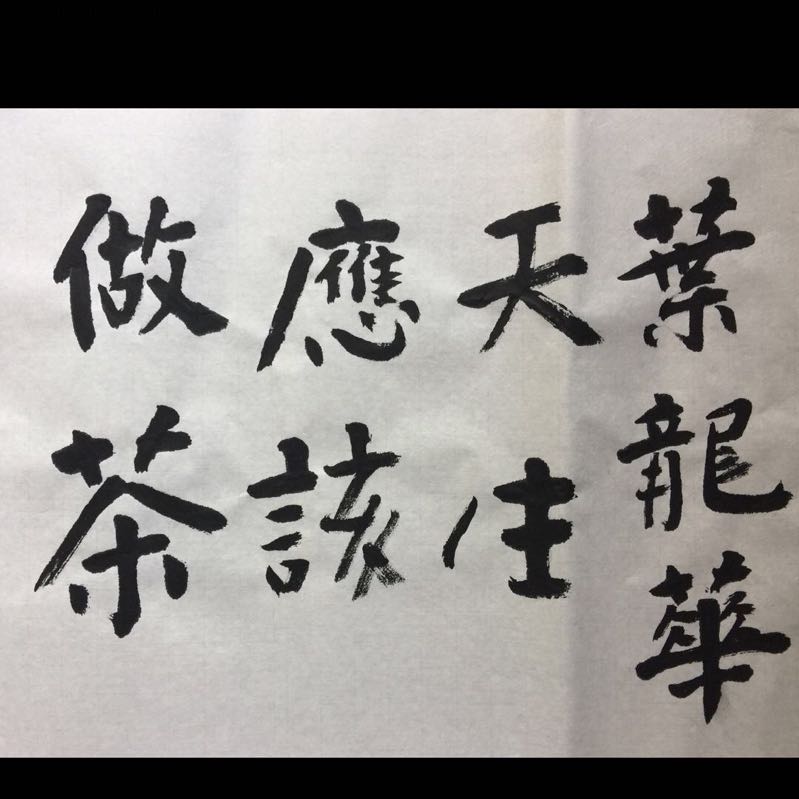 葉龍華
天生
應該
做茶